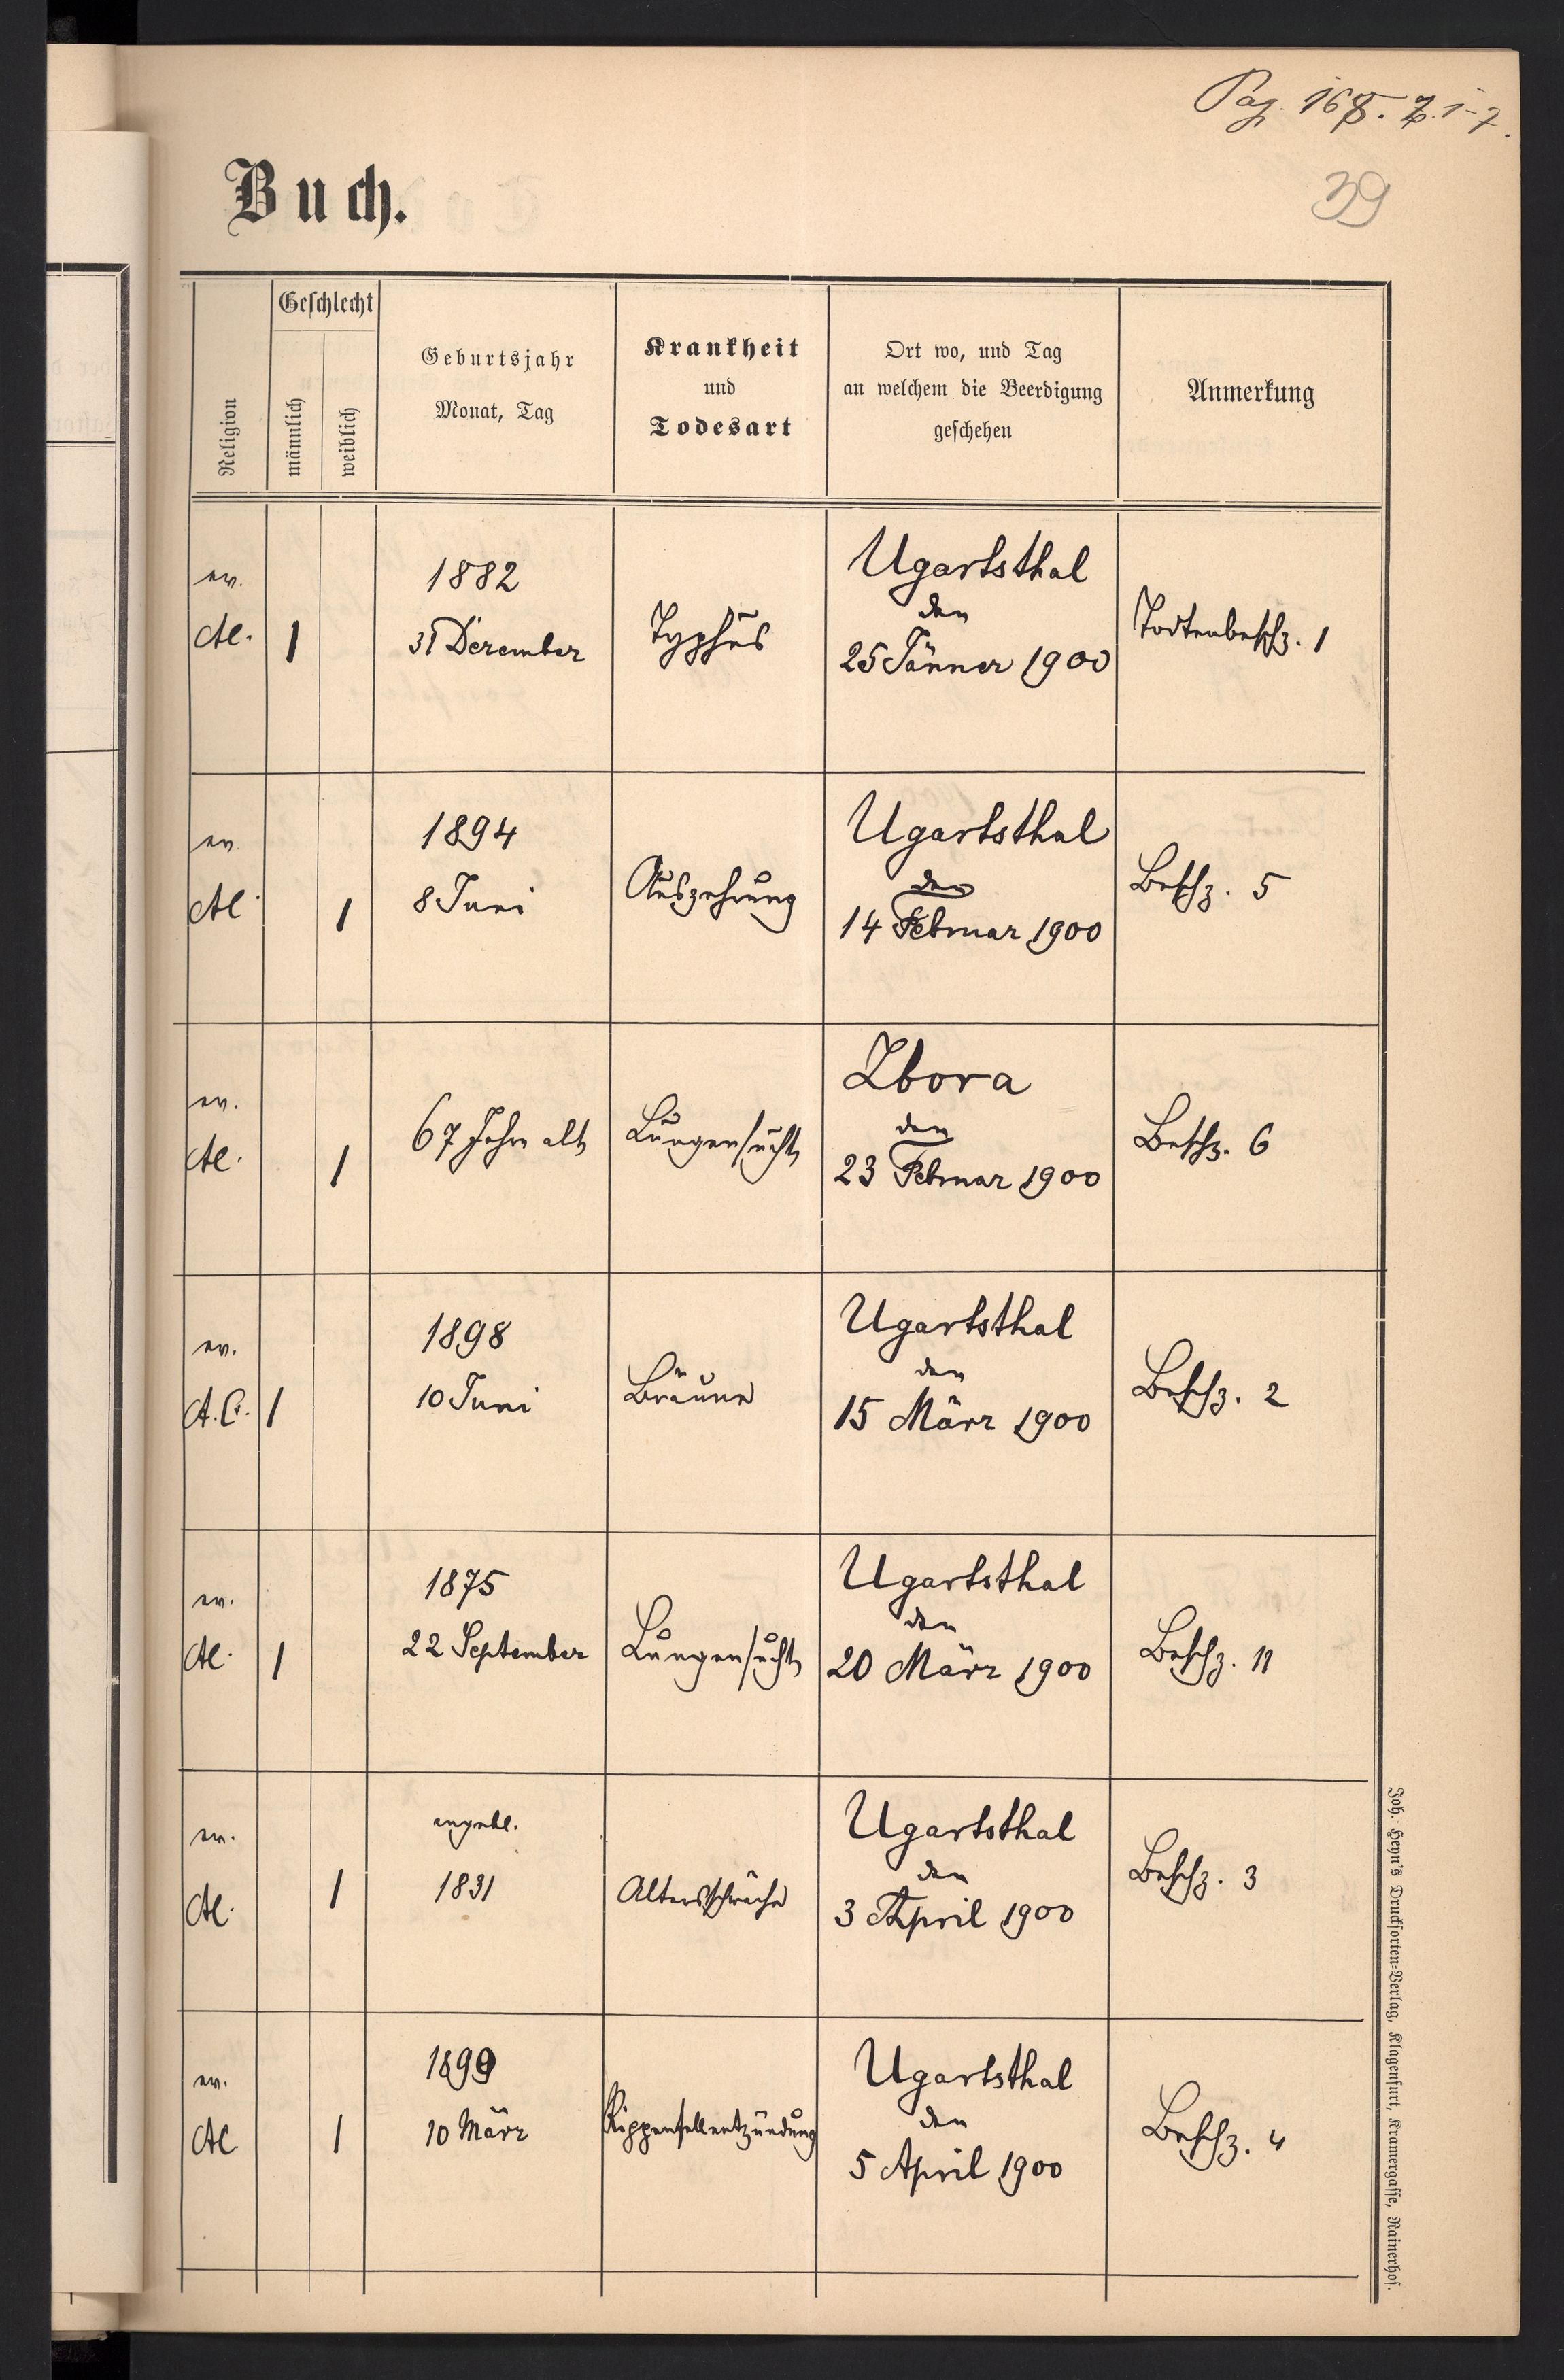 Pag. 168. Z. 1-7.
39
Buch.
Religion
Geschlecht
männlich
weiblich
Geburtsjahr
Monat, Tag
Krankheit
und
Todesart
Ort wo, und Tag
an welchem die Beerdigung
geschehen
Anmerkung
ev.
AC.
1
1882
31 Dezember
Typhus
Ugartsthal
den
25 Jänner 1900
Todtenbeschz. 1
ev
AC.
1
1894
8 Juni
Auszehrung
Ugartsthal
den
14 Februar 1900
Beschz. 5
ev.
AC.
1
67 Jahre alt
Lungensucht
Zbora
den
23 Februar 1900
Beschz. 6
ev.
A.C.
1
1898
10 Juni
Bräune
Ugartsthal
den
15 März 1900
Beschz. 2
ev.
AC.
1
1875
22 September
Lungensucht
Ugartsthal
den
20 März 1900
Beschz. 11
ev.
AC.
1
angebl.
1831
Altersschwäche
Ugartsthal
den
3 April 1900
Beschz. 3
ev.
AC
1
1899
10 März
Rippenfellentzündung
Ugartsthal
den
5 April 1900
Beschz. 4
Joh. Heyn's Drucksorten-Verlag, Klagenfurt, Kramergasse, Rainerhof.